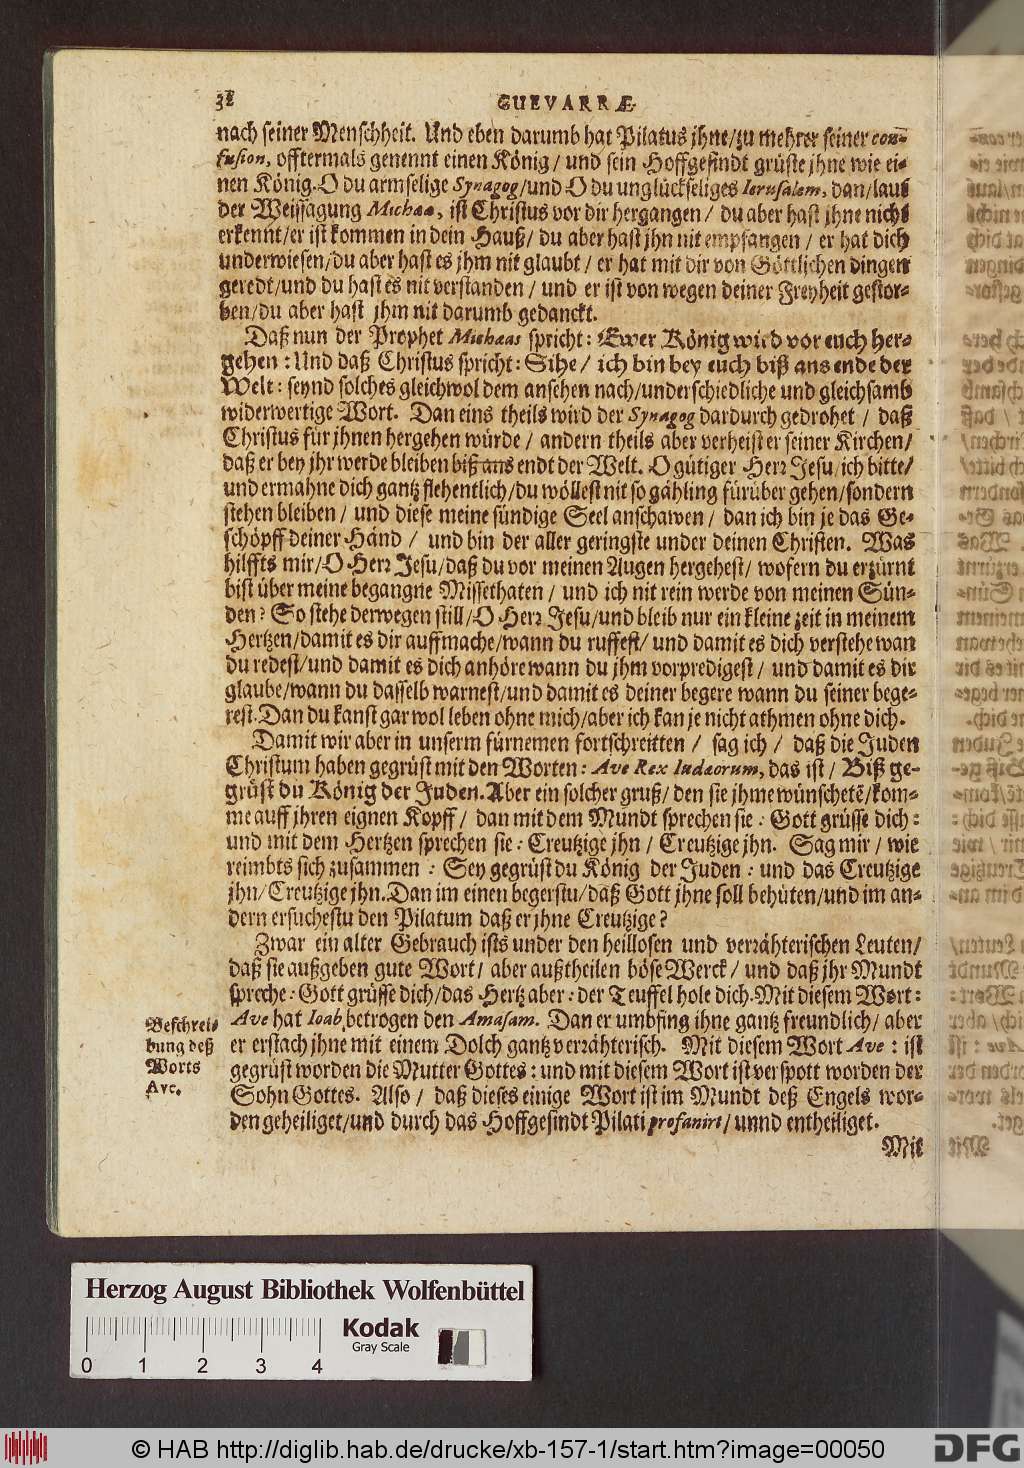 32 GUEVARRÆ
nach seiner Menschheit. Und eben darumb hat Pilatus jhne/zu mehrer seiner con-
fusion, offtermals genennt einen König/ und sein Hoffgesindt grüste jhne wie ei-
nen König. O du armselige Synagog/und O du unglückseliges Ierusalem, dan/laut
der Weissagung Michææ, ist Christus vor dir hergangen/ du aber hast jhne nicht
erkennt/er ist kommen in dein Hauß/ du aber hast jhn nit empfangen/ er hat dich
underwiesen/du aber hast es jhm nit glaubt/ er hat mit dir von Göttlichen dingen
geredt/und du hast es nit verstanden/ und er ist von wegen deiner Freyheit gestor-
ben/du aber hast jhm nit darumb gedanckt.
Daß nun der Prophet Michæas spricht: Ewer König wird vor euch her-
gehen: Und daß Christus spricht: Sihe/ ich bin bey euch biß ans ende der
Welt: seynd solches gleichwol dem ansehen nach/underschiedliche und gleichsamb
widerwertige Wort. Dan eins theils wird der Synagog dardurch gedrohet/ daß
Christus für jhnen hergehen würde/ andern theils aber verheist er seiner Kirchen/
daß er bey jhr werde bleiben biß ans endt der Welt. O gütiger Herr Jesu/ich bitte/
und ermahne dich gantz flehentlich/du wöllest nit so gähling fürüber gehen/sondern
stehen bleiben/ und diese meine sündige Seel anschawen/ dan ich bin je das Ge-
schöpff deiner Händ/ und bin der aller geringste under deinen Christen. Was
hilffts mir/O Herr Jesu/daß du vor meinen Augen hergehest/ wofern du erzürnt
bist über meine begangne Missethaten/ und ich nit rein werde von meinen Sün-
den? So stehe derwegen still/O Herr Jesu/und bleib nur ein kleine zeit in meinem
Hertzen/damit es dir auffmache/wann du ruffest/ und damit es dich verstehe wan
du redest/und damit es dich anhöre wann du jhm vorpredigest/ und damit es dir
glaube/wann du dasselb warnest/und damit es deiner begere wann du seiner bege-
rest. Dan du kanst gar wol leben ohne mich/aber ich kan je nicht athmen ohne dich.
Damit wir aber in unserm fürnemen fortschreitten/ sag ich/ daß die Juden
Christum haben gegrüst mit den Worten: Ave Rex Iudæorum, das ist/ Biß ge-
grüst du König der Juden. Aber ein solcher gruß/ den sie jhme wünschetē/kom-
me auff jhren eignen Kopff/ dan mit dem Mundt sprechen sie: Gott grüsse dich:
und mit dem Hertzen sprechen sie: Creutzige jhn/ Creutzige jhn. Sag mir/ wie
reimbts sich zusammen: Sey gegrüst du König der Juden: und das Creutzige
jhn/Creutzige jhn. Dan im einen begerstu/daß Gott jhne soll behüten/und im an-
dern ersuchestu den Pilatum daß er jhne Creutzige?
Zwar ein alter Gebrauch ists under den heillosen und verrähterischen Leuten/
daß sie außgeben gute Wort/ aber außtheilen böse Werck/ und daß jhr Mundt
spreche: Gott grüsse dich/das Hertz aber: der Teuffel hole dich. Mit diesem Wort:
Ave hat Ioab betrogen den Amasam. Dan er umbfing ihne gantz freundlich/ aber
er erstach jhne mit einem Dolch gantz verrähterisch. Mit diesem Wort Ave: ist
gegrüst worden die Mutter Gottes: und mit diesem Wort ist verspott worden der
Sohn Gottes. Also/ daß dieses einige Wort ist im Mundt deß Engels wor-
den geheiliget/und durch das Hoffgesindt Pilati profanirt/ unnd entheiliget.
Mit
Beschrei-
bung deß
Worts
Ave.
Herzog August Bibliothek Wolfenbüttel
Kodak
Gray Scale
0 1 2 3 4
© HAB http://diglib.hab.de/drucke/xb-157-1/start.htm?image=00050
DFG